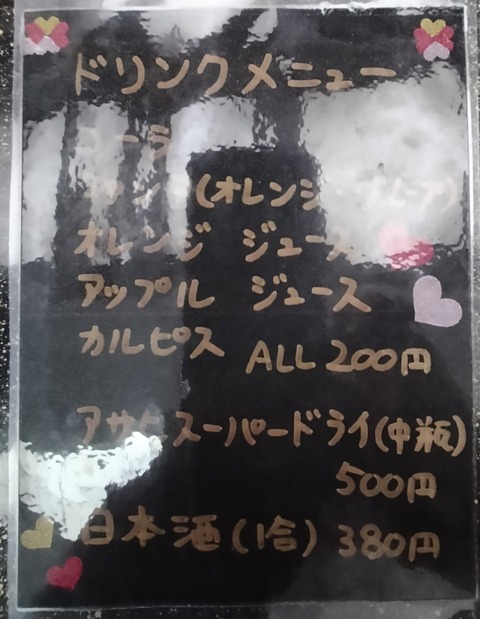 ドリンクメニュー
コーラ
(オレンジ・
オレンジ ジュース
アップル ジュース
カルピス ALL 200円
アサヒスーパードライ(中瓶)
500円
日本酒(1合) 380円